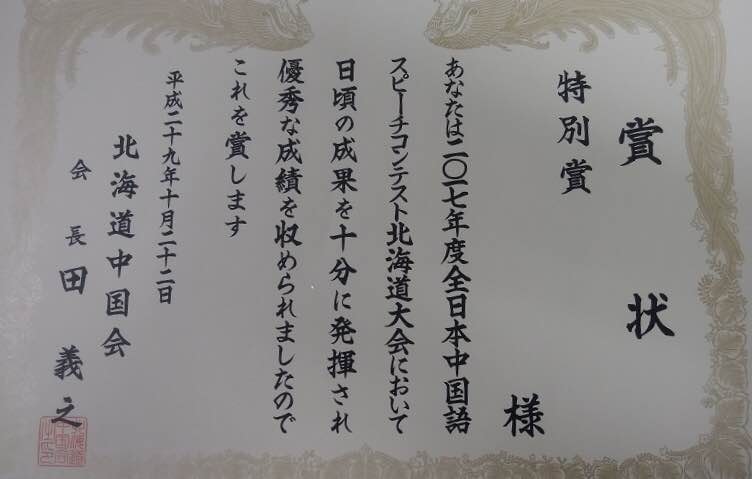 賞状
特別賞
様
あなたは二〇一七年度全日本中国語
スピーチコンテスト北海道大会において
日頃の成果を十分に発揮され
優秀な成績を収められましたので
これを賞します
平成二十九年十月二十二日
北海道中国会
会長 田 義之